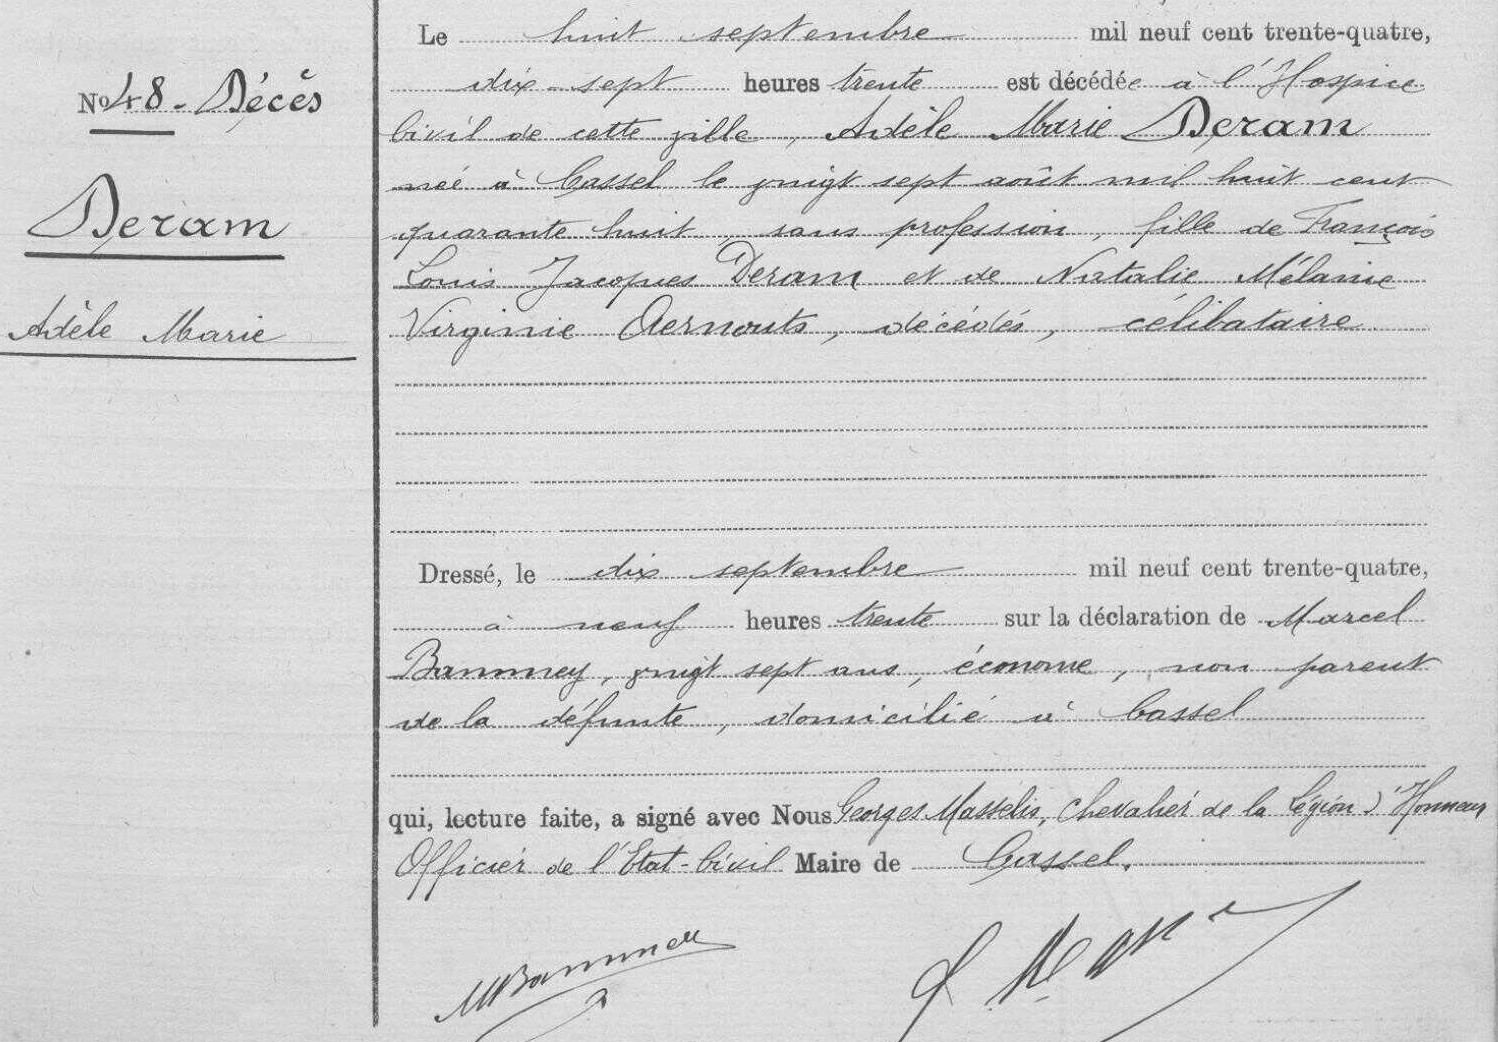 No 48 - Décès
Deram
Adèle Marie
Le huit septembre mil neuf cent trente-quatre,
dix-sept heures trente est décédée à l'Hospice
Civil de cette ville, Adèle Marie Deram
née à Cassel le vingt sept août mil huit cent
quarante huit, sans profession, fille de François
Louis Jacques Deram et de Natalie Mélanie
Virginie Aernouts, décédés, célibataire
Dressé, le dix septembre mil neuf cent trente-quatre,
à neuf heures trente sur la déclaration de Marcel
Bammey, vingt sept ans, économe, non parent
de la défunte, domicilié à Cassel
qui, lecture faite, a signé avec Nous Georges Massélis, Chevalier de la Légion d'Honneur
Officier de l'Etat-Civil Maire de Cassel.